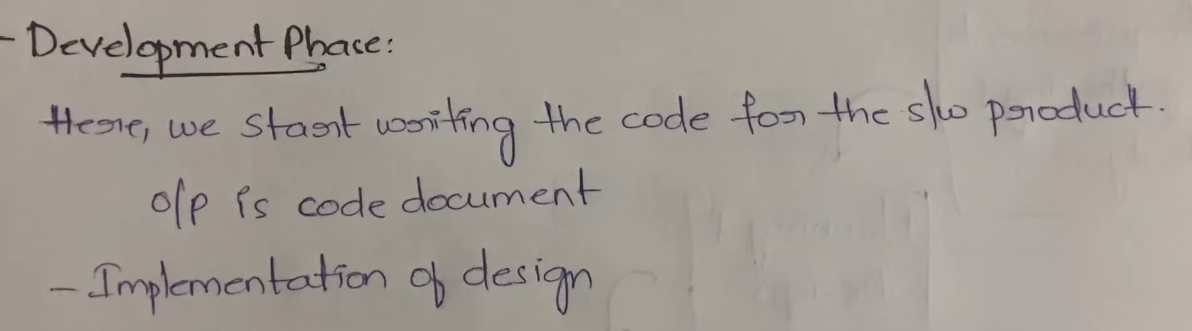 - Development Phase:
Here, we start writing the code for the s/w product.
o/p is code document
- Implementation of design